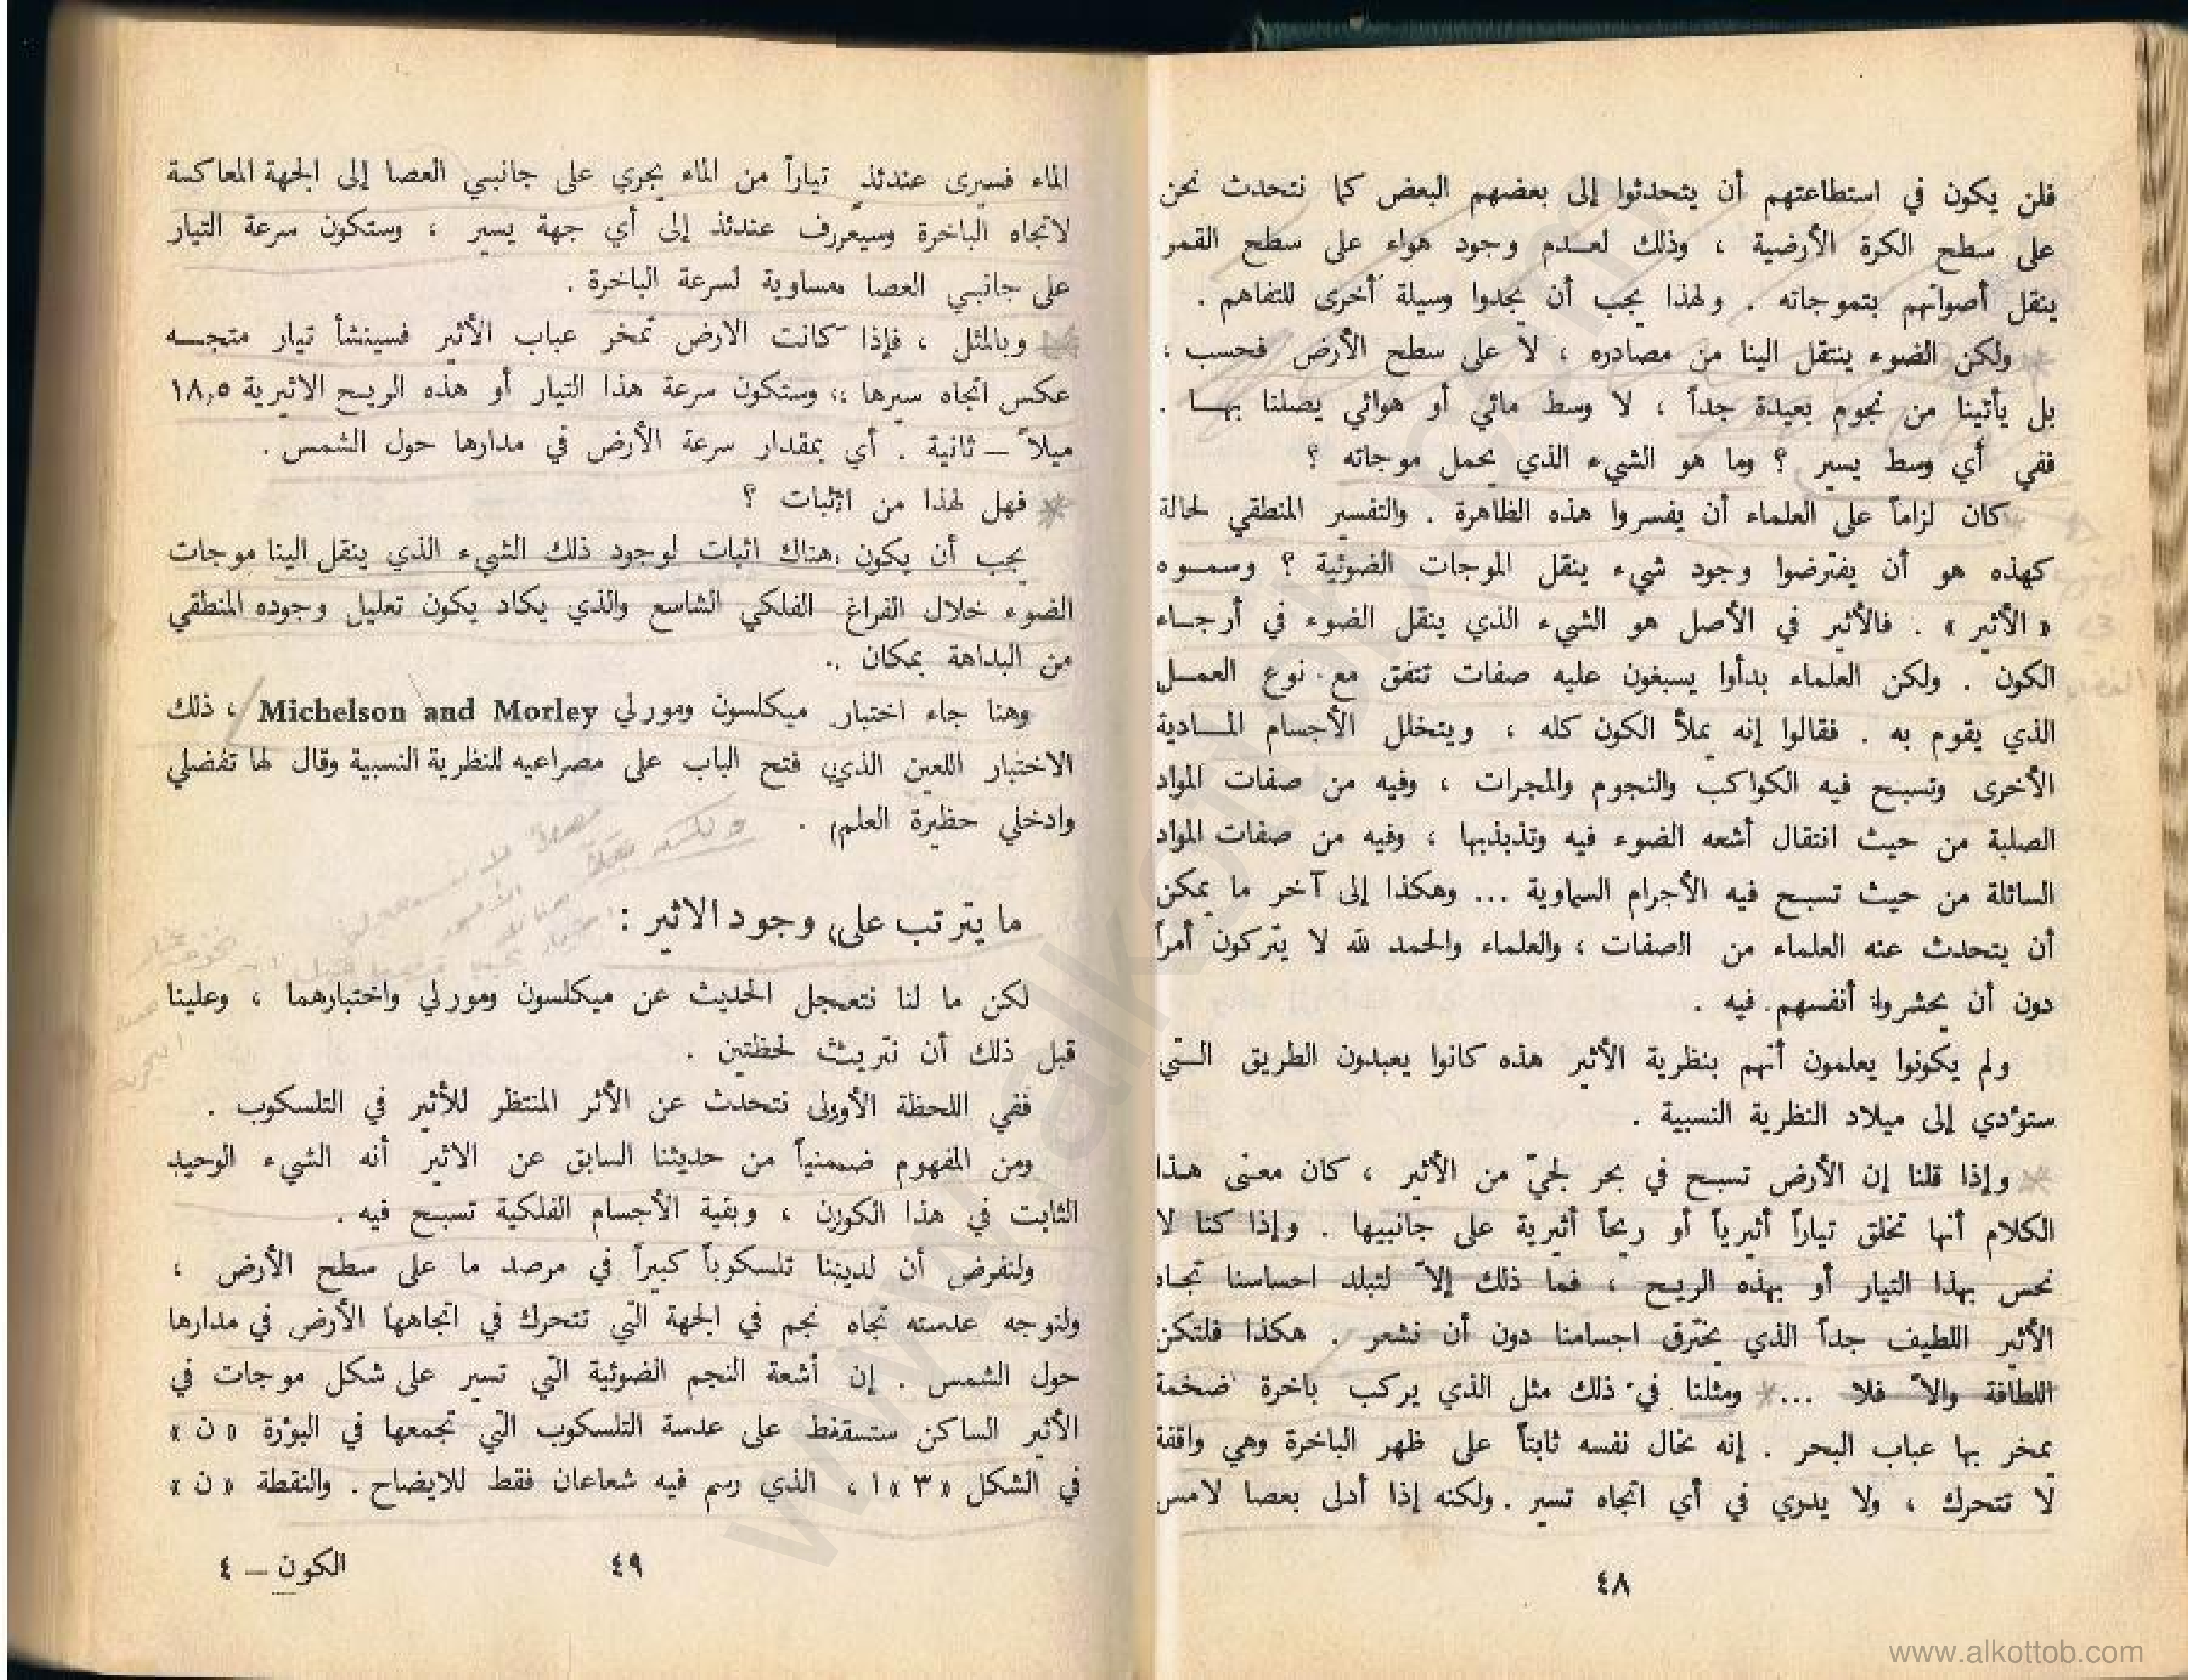 فلن يكون في استطاعتهم أن يتحدثوا إلى بعضهم البعض كما نتحدث نحن
على سطح الكرة الأرضية ، وذلك لعدم وجود هواء على سطح القمر
ينقل أصواتهم بتموجاته . ولهذا يجب أن يجدوا وسيلة أخرى للتفاهم .
ولكن الضوء ينتقل الينا من مصادره ، لا على سطح الأرض فحسب ،
بل يأتينا من نجوم بعيدة جداً ، لا وسط مائي أو هوائي يصلنا بها .
ففي أي وسط يسير ؟ وما هو الشيء الذي يحمل موجاته ؟
كان لزاماً على العلماء أن يفسروا هذه الظاهرة . والتفسير المنطقي لحالة
كهذه هو أن يفترضوا وجود شيء ينقل الموجات الضوئية ؟ وسموه
« الأثير » . فالأثير في الأصل هو الشيء الذي ينقل الضوء في أرجاء
الكون . ولكن العلماء بدأوا يسبغون عليه صفات تتفق مع نوع العمل
الذي يقوم به . فقالوا إنه يملأ الكون كله ، ويتخلل الأجسام المادية
الأخرى وتسبح فيه الكواكب والنجوم والمجرات ، وفيه من صفات المواد
الصلبة من حيث انتقال أشعه الضوء فيه وتذبذبها ، وفيه من صفات المواد
السائلة من حيث تسبح فيه الأجرام السماوية ... وهكذا إلى آخر ما يمكن
أن يتحدث عنه العلماء من الصفات ، والعلماء والحمد لله لا يتركون أمراً
دون أن يحشروا أنفسهم فيه .
ولم يكونوا يعلمون أنهم بنظرية الأثير هذه كانوا يعبدون الطريق التي
ستؤدي إلى ميلاد النظرية النسبية .
وإذا قلنا إن الأرض تسبح في بحر لجيّ من الأثير ، كان معنى هذا
الكلام أنها تخلق تياراً أثيرياً أو ريحاً أثيرية على جانبيها . وإذا كنا لا
نحس بهذا التيار أو بهذه الريح ، فما ذلك إلاّ لتبلد احساسنا تجاه
الأثير اللطيف جداً الذي يخترق اجسامنا دون أن نشعر . هكذا فلتكن
اللطافة والاّ فلا ... ومثلنا في ذلك مثل الذي يركب باخرة ضخمة
يمخر بها عباب البحر . إنه يخال نفسه ثابتاً على ظهر الباخرة وهي واقفة
لا تتحرك ، ولا يدري في أي اتجاه تسير . ولكنه إذا أدلى بعصا لامس
٤٨
الماء فسيرى عندئذ تياراً من الماء يجري على جانبي العصا إلى الجهة المعاكسة
لاتجاه الباخرة وسيعرف عندئذ إلى أي جهة يسير ، وستكون سرعة التيار
على جانبي العصا مساوية لسرعة الباخرة .
وبالمثل ، فإذا كانت الارض تمخر عباب الأثير فسينشأ تيار متجه
عكس اتجاه سيرها ، وستكون سرعة هذا التيار أو هذه الريح الاثيرية ١٨,٥
ميلاً – ثانية . أي بمقدار سرعة الأرض في مدارها حول الشمس .
فهل لهذا من اثبات ؟
يجب أن يكون هناك اثبات لوجود ذلك الشيء الذي ينقل الينا موجات
الضوء خلال الفراغ الفلكي الشاسع والذي يكاد يكون تعليل وجوده المنطقي
من البداهة بمكان .
وهنا جاء اختبار ميكلسون ومورلي Michelson and Morley ، ذلك
الاختبار اللعين الذي فتح الباب على مصراعيه للنظرية النسبية وقال لها تفضلي
وادخلي حظيرة العلم .
ما يترتب على وجود الاثير :
لكن ما لنا نتعجل الحديث عن ميكلسون ومورلي واختبارهما ، وعلينا
قبل ذلك أن نتريث لحظتين .
ففي اللحظة الأولى نتحدث عن الأثر المنتظر للأثير في التلسكوب .
ومن المفهوم ضمنياً من حديثنا السابق عن الاثير أنه الشيء الوحيد
الثابت في هذا الكون ، وبقية الأجسام الفلكية تسبح فيه .
ولنفرض أن لدينا تلسكوباً كبيراً في مرصد ما على سطح الأرض ،
ولنوجه عدسته تجاه نجم في الجهة التي تتحرك في اتجاهها الأرض في مدارها
حول الشمس . إن أشعة النجم الضوئية التي تسير على شكل موجات في
الأثير الساكن ستسقط على عدسة التلسكوب التي تجمعها في البؤرة « ن »
في الشكل « ٣ » ، الذي رسم فيه شعاعان فقط للايضاح . والنقطة « ن »
٤٩
الكون – ٤
www.alkottob.com